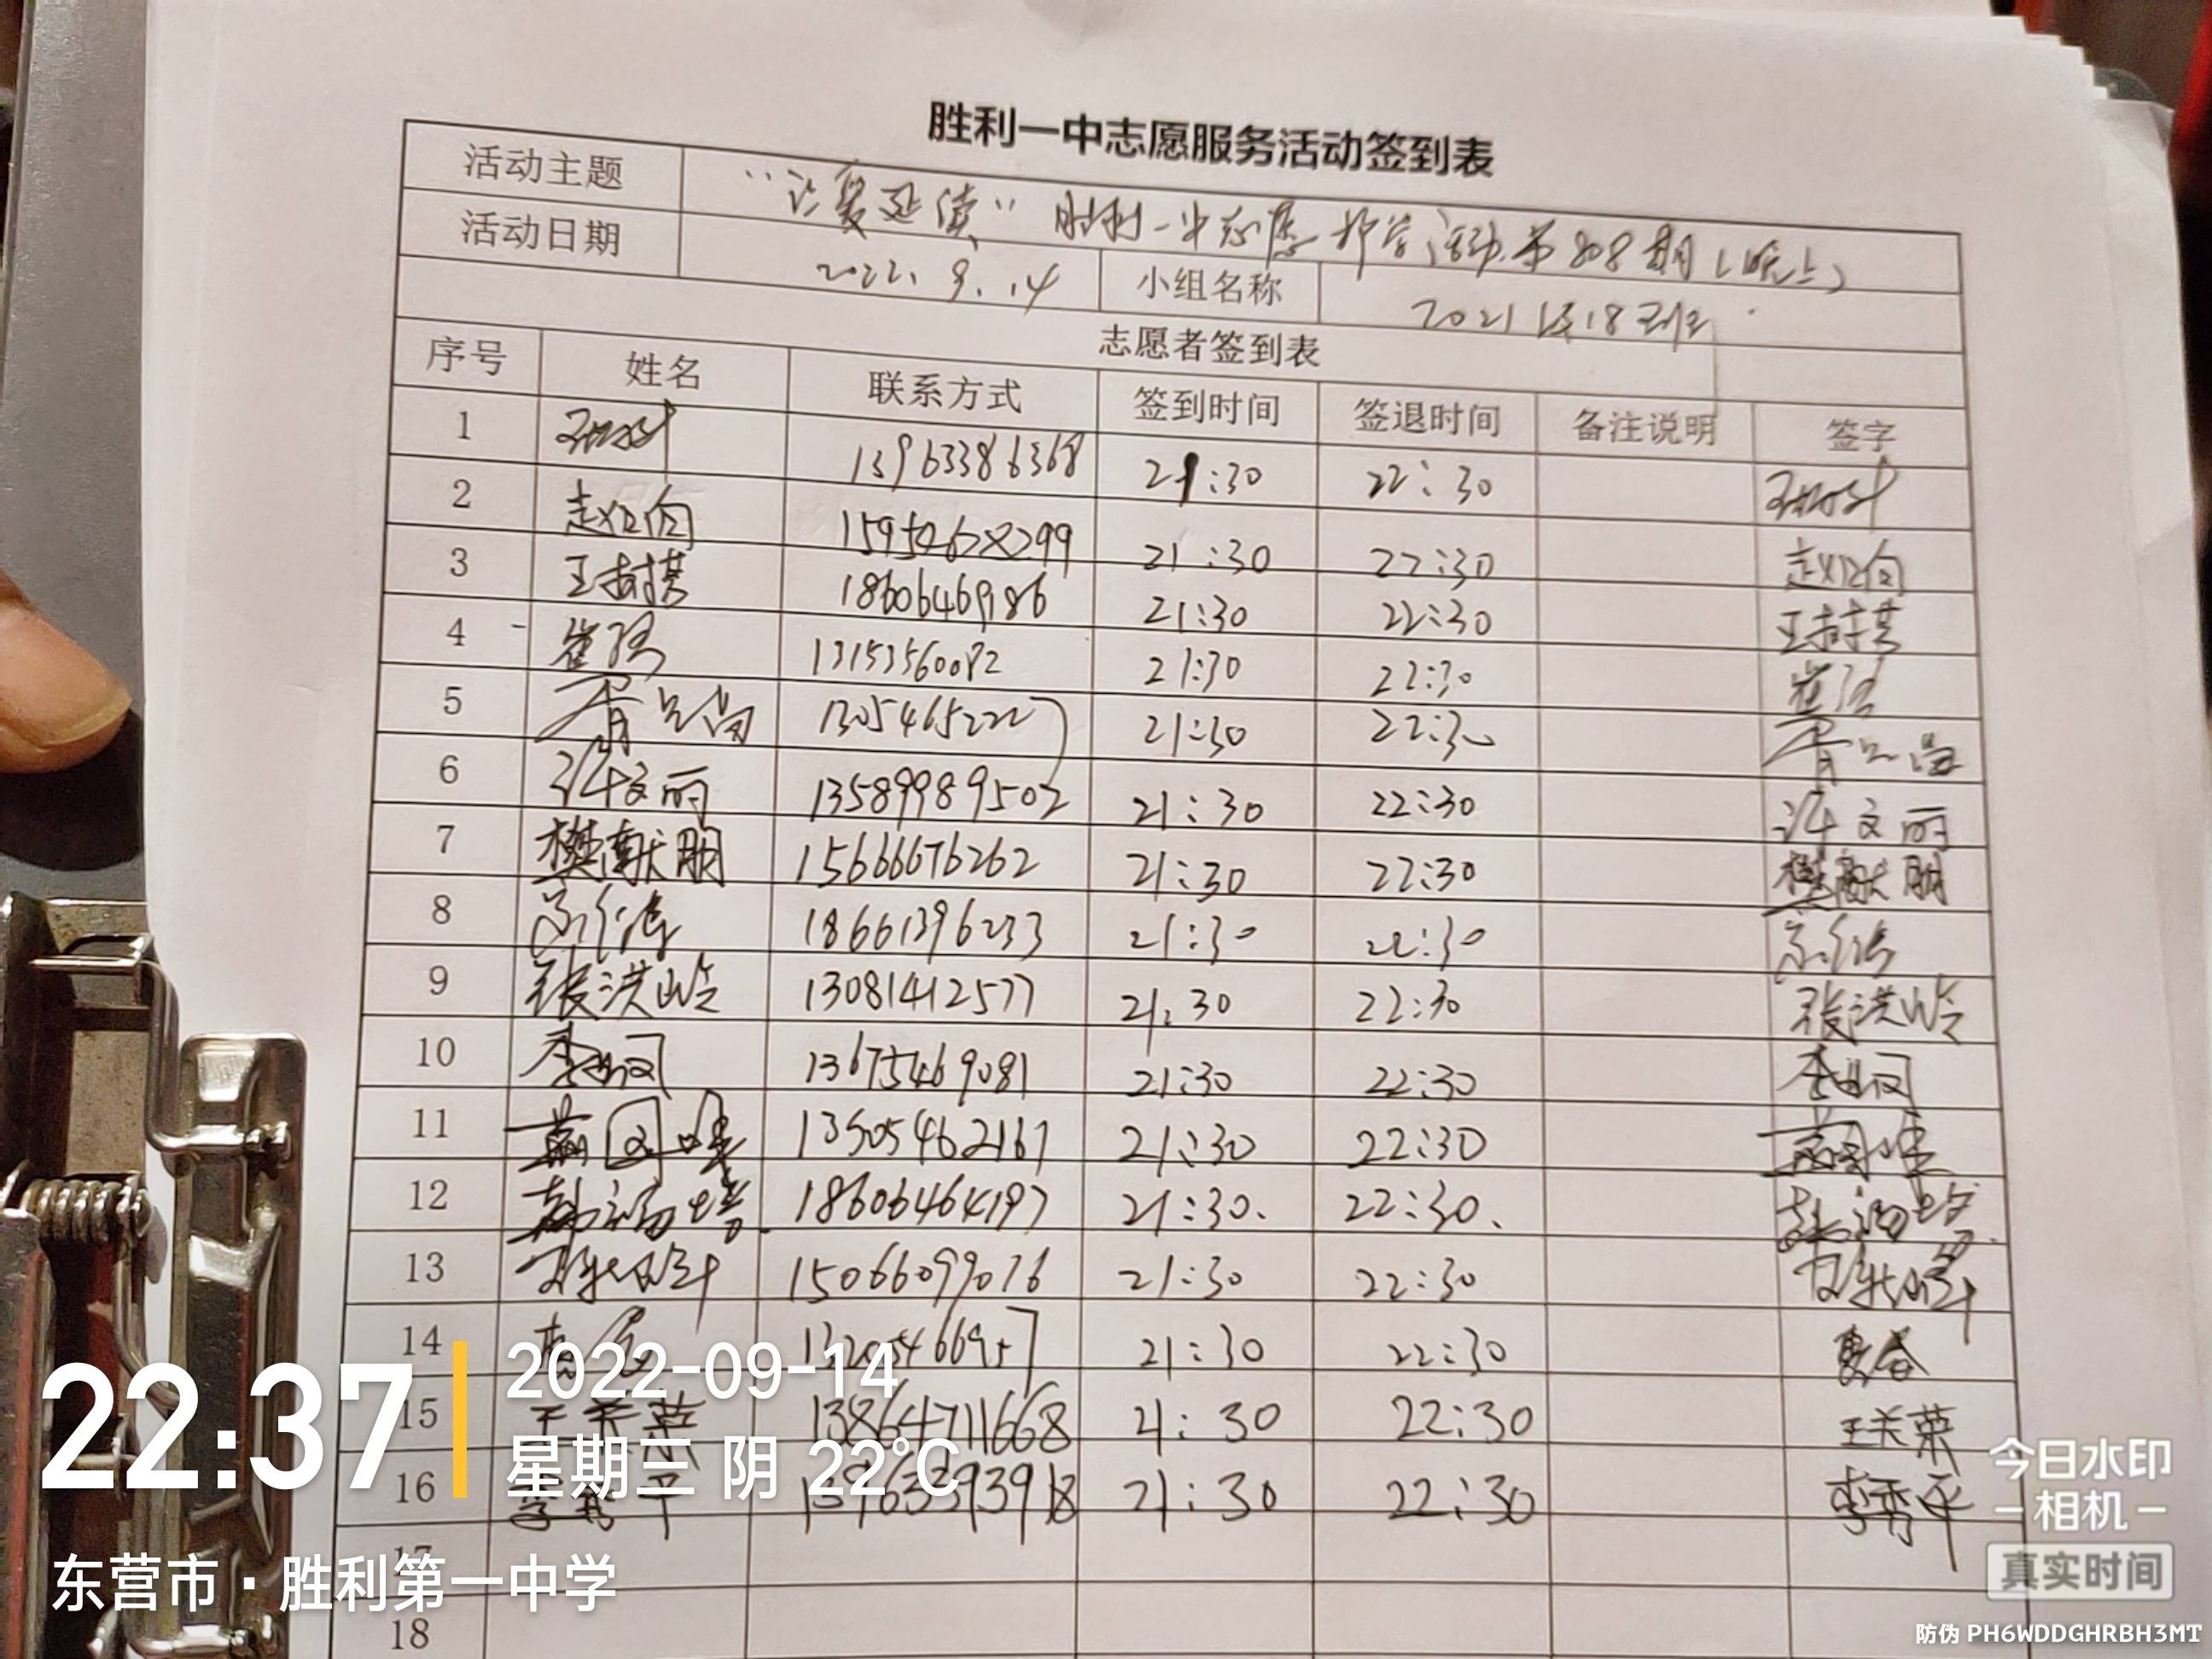 胜利一中志愿服务活动签到表
活动主题 "让爱延续"胜利一中志愿护学活动第808期(晚上)
活动日期 2022.9.14 小组名称 2021级18班
志愿者签到表
序号 姓名 联系方式 签到时间 签退时间 备注说明 签字
1 13963386368 21:30 22:30
2 21:30 22:30
3 王树其 18606469186 21:30 22:30 王树其
4 崔强 13153560082 21:30 22:30 崔强
5 21:30 22:30
6 文丽 13589989502 21:30 22:30 文丽
7 樊献朋 15666676262 21:30 22:30 樊献朋
8 18661396233 21:30 22:30
9 张洪岭 13081412577 21:30 22:30 张洪岭
10 13675469081 21:30 22:30
11 21:30 22:30
12 18606464197 21:30. 22:30.
13 15066099076 21:30 22:30
14 21:30 22:30
15 王关荣 13864711668 21:30 22:30 王关荣
16 李秀平 21:30 22:30 李秀平
17
18
22:37
2022-09-14
星期三 阴 22℃
东营市·胜利第一中学
今日水印
相机
真实时间
防伪 PH6WDDGHRBH3MT